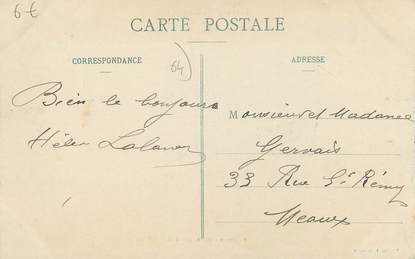 6€
CARTE POSTALE
CORRESPONDANCE
64
ADRESSE
Bien le bonjour
Monsieur et Madame
Gervais
33 Rue St Rémy
Meaux